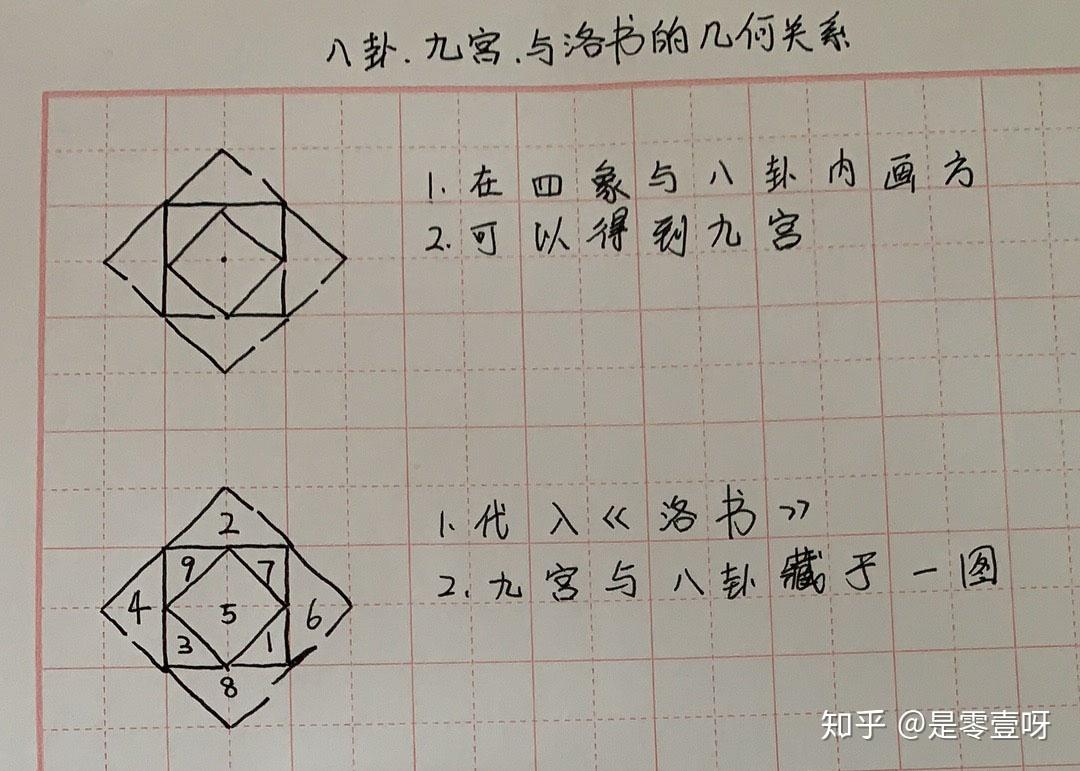 八卦.九宫.与洛书的几何关系
1.在四象与八卦内画方
2.可以得到九宫
1.代入《洛书》
2.九宫与八卦藏于一图
2
9 7
4 5 6
3 1
8
知乎 @是零壹呀